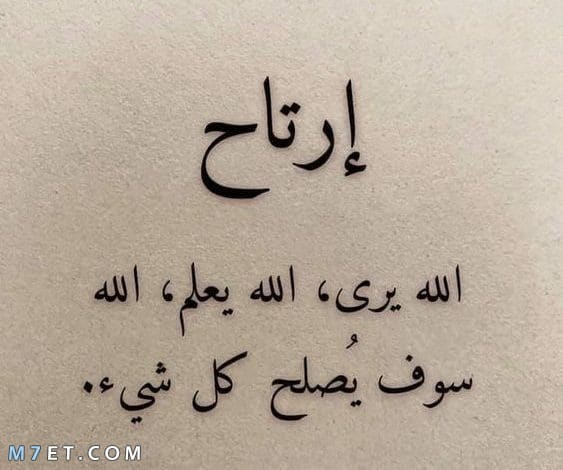 إرتاح
الله يرى، الله يعلم، الله
سوف يُصلح كل شيء.
M7ET.COM